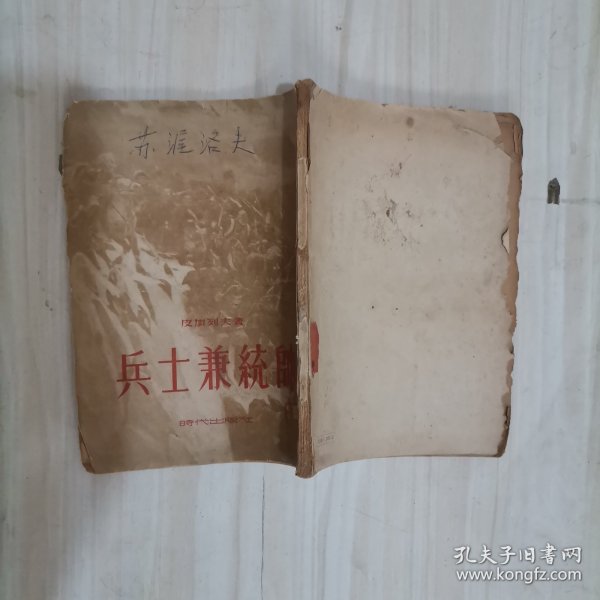 苏涯洛夫
皮加列夫著
兵士兼統帥
時代出版社
孔夫子旧书网
www.kongfz.com